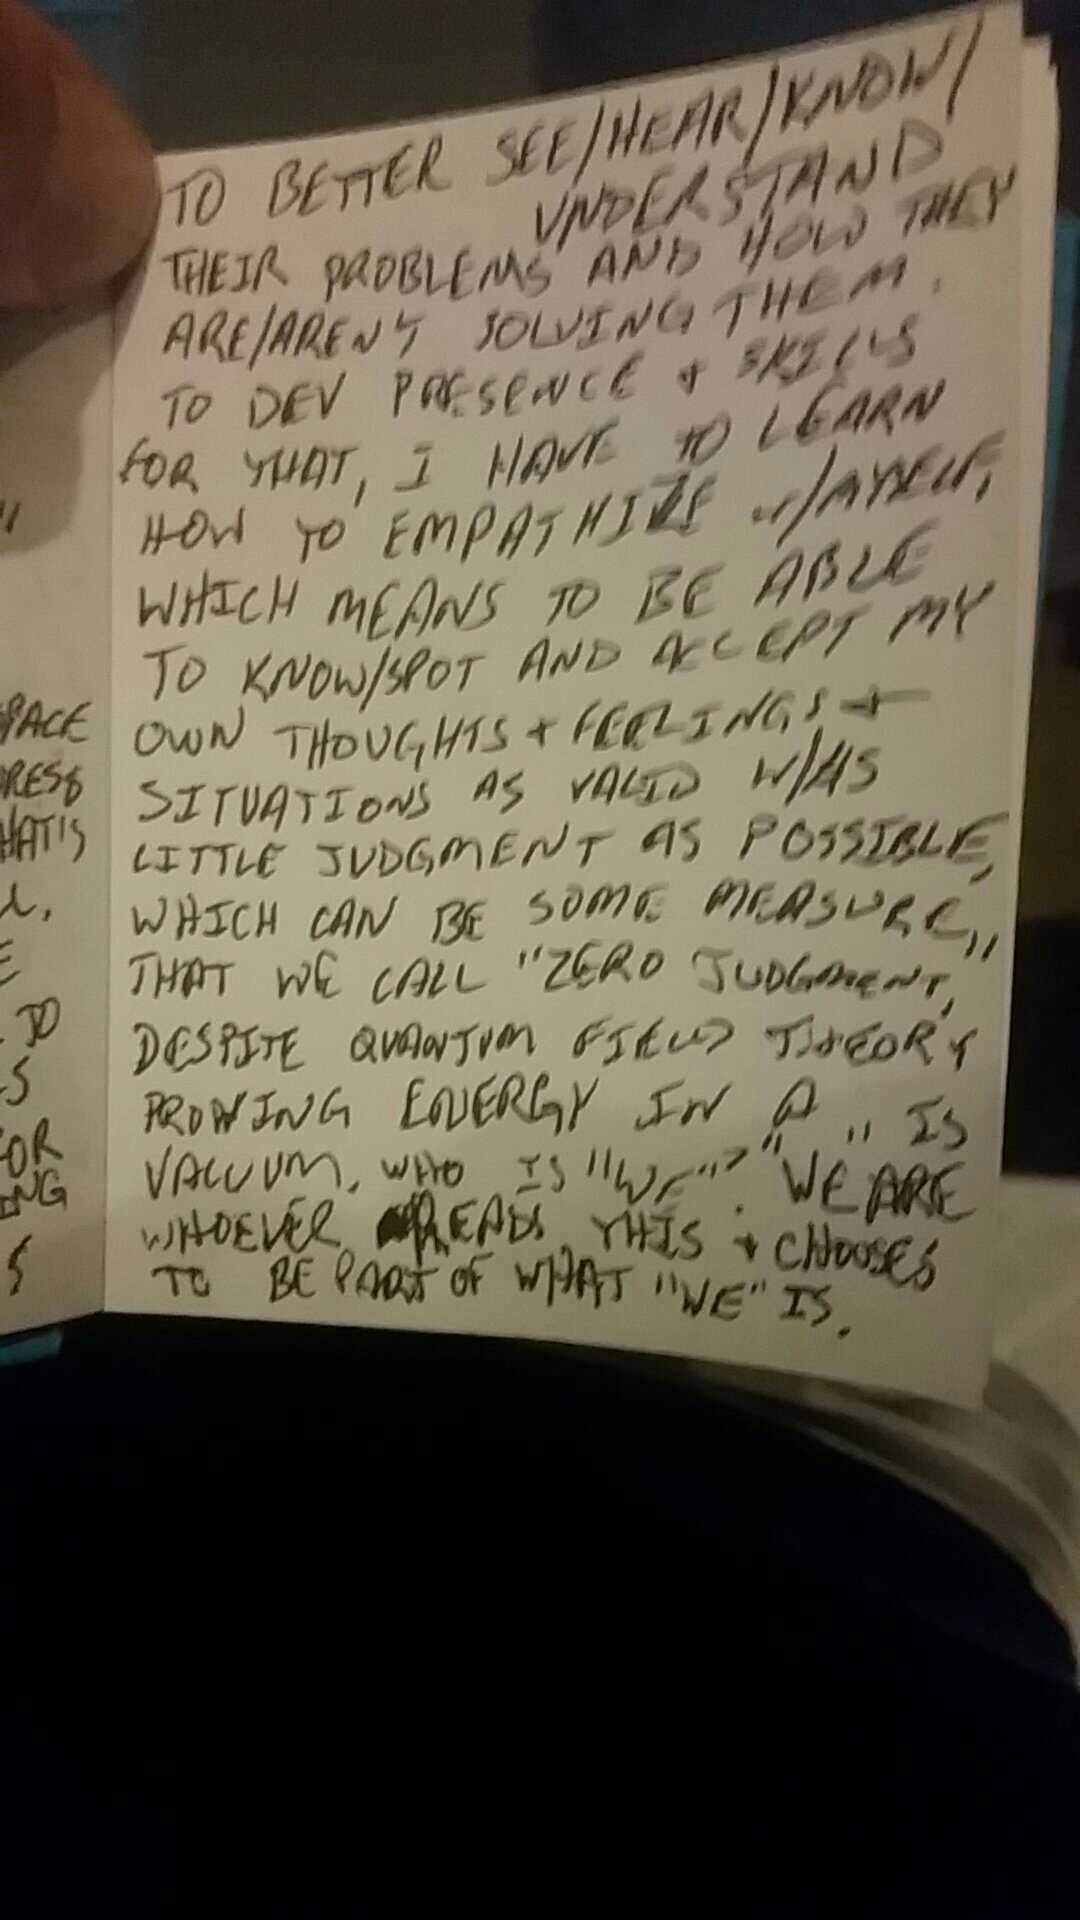 TO BETTER SEE/HEAR/KNOW/
UNDERSTAND
THEIR PROBLEMS AND HOW THEY
ARE/AREN'T SOLVING THEM.
TO DEV PRESENCE + SKILLS
FOR THAT, I HAVE TO LEARN
HOW TO EMPATHIZE W/MYSELF,
WHICH MEANS TO BE ABLE
TO KNOW/SPOT AND ACCEPT MY
OWN THOUGHTS + FEELINGS +
SITUATIONS AS VALID W/AS
LITTLE JUDGMENT AS POSSIBLE,
WHICH CAN BE SOME MEASURE,
THAT WE CALL "ZERO JUDGMENT,"
DESPITE QUANTUM FIELD THEORY
PROVING ENERGY IN A
VACUUM. WHO IS "WE"? " " IS
WE ARE
WHOEVER READS THIS + CHOOSES
TO BE PART OF WHAT "WE" IS.
PACE
RESS
HAT'S
E
DO
S
FOR
ING
S